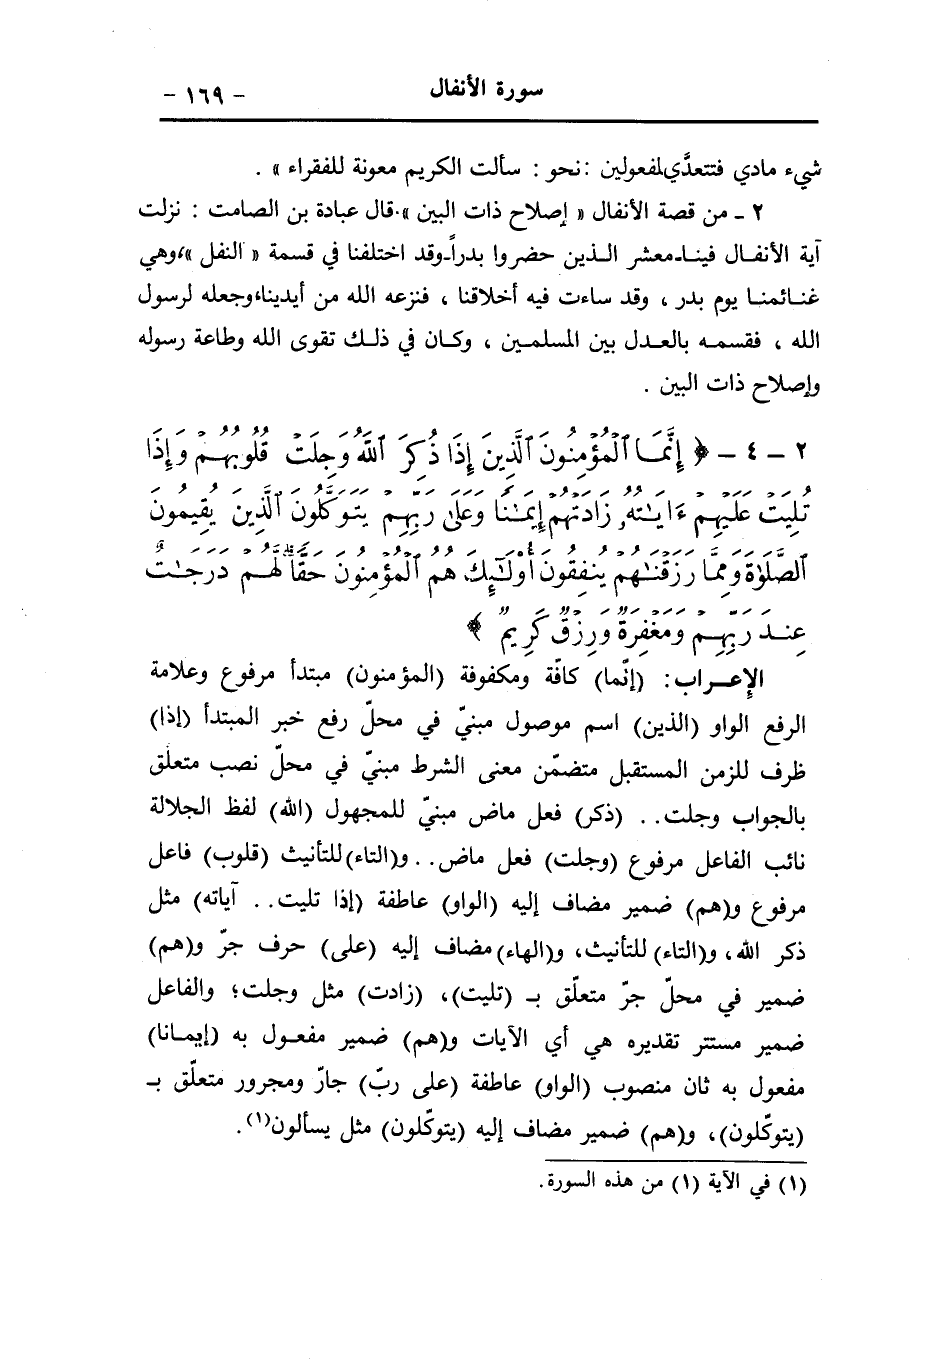 سورة الأنفال - ١٦٩ -
شيء مادي فتتعدَّي لمفعولين : نحو : سألت الكريم معونة للفقراء » .
٢ ـ من قصة الأنفال « إصلاح ذات البين » . قال عبادة بن الصامت : نزلت
آية الأنفال فينا ـ معشر الذين حضروا بدراً ـ وقد اختلفنا في قسمة « النفل » ، وهي
غنائمنا يوم بدر ، وقد ساءت فيه أخلاقنا ، فنزعه الله من أيدينا ، وجعله لرسول
الله ، فقسمه بالعدل بين المسلمين ، وكان في ذلك تقوى الله وطاعة رسوله
وإصلاح ذات البين .
٢ - ٤ - ﴿ إِنَّمَا ٱلْمُؤْمِنُونَ ٱلَّذِينَ إِذَا ذُكِرَ ٱللَّهُ وَجِلَتْ قُلُوبُهُمْ وَإِذَا
تُلِيَتْ عَلَيْهِمْ ءَايَـٰتُهُۥ زَادَتْهُمْ إِيمَـٰنًا وَعَلَىٰ رَبِّهِمْ يَتَوَكَّلُونَ ٱلَّذِينَ يُقِيمُونَ
ٱلصَّلَوٰةَ وَمِمَّا رَزَقْنَـٰهُمْ يُنفِقُونَ أُوْلَـٰٓئِكَ هُمُ ٱلْمُؤْمِنُونَ حَقًّا لَّهُمْ دَرَجَـٰتٌ
عِندَ رَبِّهِمْ وَمَغْفِرَةٌ وَرِزْقٌ كَرِيمٌ ﴾
الإعراب: (إنّما) كافّة ومكفوفة (المؤمنون) مبتدأ مرفوع وعلامة
الرفع الواو (الذين) اسم موصول مبنيّ في محلّ رفع خبر المبتدأ (إذا)
ظرف للزمن المستقبل متضمّن معنى الشرط مبنيّ في محلّ نصب متعلق
بالجواب وجلت.. (ذكر) فعل ماض مبنيّ للمجهول (الله) لفظ الجلالة
نائب الفاعل مرفوع (وجلت) فعل ماض.. و(التاء) للتأنيث (قلوب) فاعل
مرفوع و(هم) ضمير مضاف إليه (الواو) عاطفة (إذا تليت.. آياته) مثل
ذكر الله، و(التاء) للتأنيث، و(الهاء) مضاف إليه (على) حرف جرّ و(هم)
ضمير في محلّ جرّ متعلّق بـ (تليت)، (زادت) مثل وجلت؛ والفاعل
ضمير مستتر تقديره هي أي الآيات و(هم) ضمير مفعول به (إيمانا)
مفعول به ثان منصوب (الواو) عاطفة (على ربّ) جارّ ومجرور متعلّق بـ
(يتوكّلون)، و(هم) ضمير مضاف إليه (يتوكّلون) مثل يسألون(١).
(١) في الآية (١) من هذه السورة.